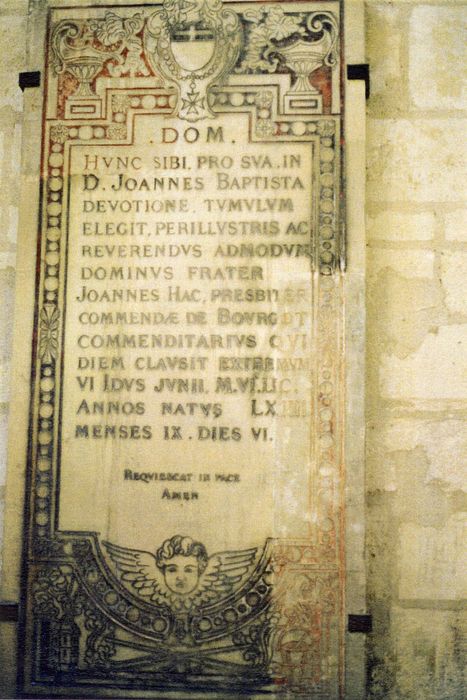 .DOM.
HVNC SIBI. PRO SVA. IN
D. JOANNES BAPTISTA
DEVOTIONE, TVMVLVM
ELEGIT, PERILLVSTRIS AC
REVERENDVS ADMODVM
DOMINVS FRATER
JOANNES HAC, PRESBITER
COMMENDÆ DE
COMMENDITARIVS QVI
DIEM CLAVSIT EXTREMVM
VI IDVS JVNII.
ANNOS NATVS
MENSES IX. DIES VI.
REQVIESCAT IN PACE
AMEN